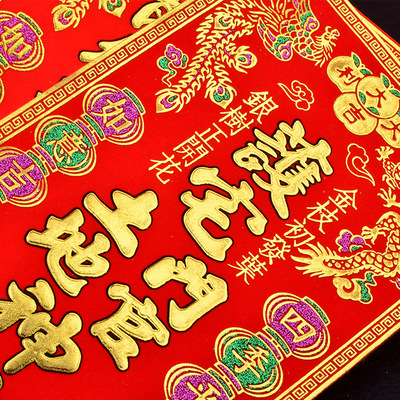 大吉大利
金枝初發葉
銀樹正開花
護宅
門官
土地神
四季平
如意吉